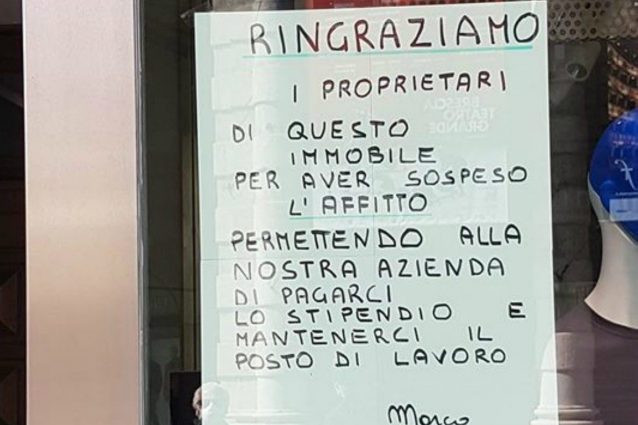 RINGRAZIAMO
I PROPRIETARI
DI QUESTO
IMMOBILE
PER AVER SOSPESO
L'AFFITTO
PERMETTENDO ALLA
NOSTRA AZIENDA
DI PAGARCI
LO STIPENDIO E
MANTENERCI IL
POSTO DI LAVORO
Marco
BRESCIA
TEATRO
GRANDE